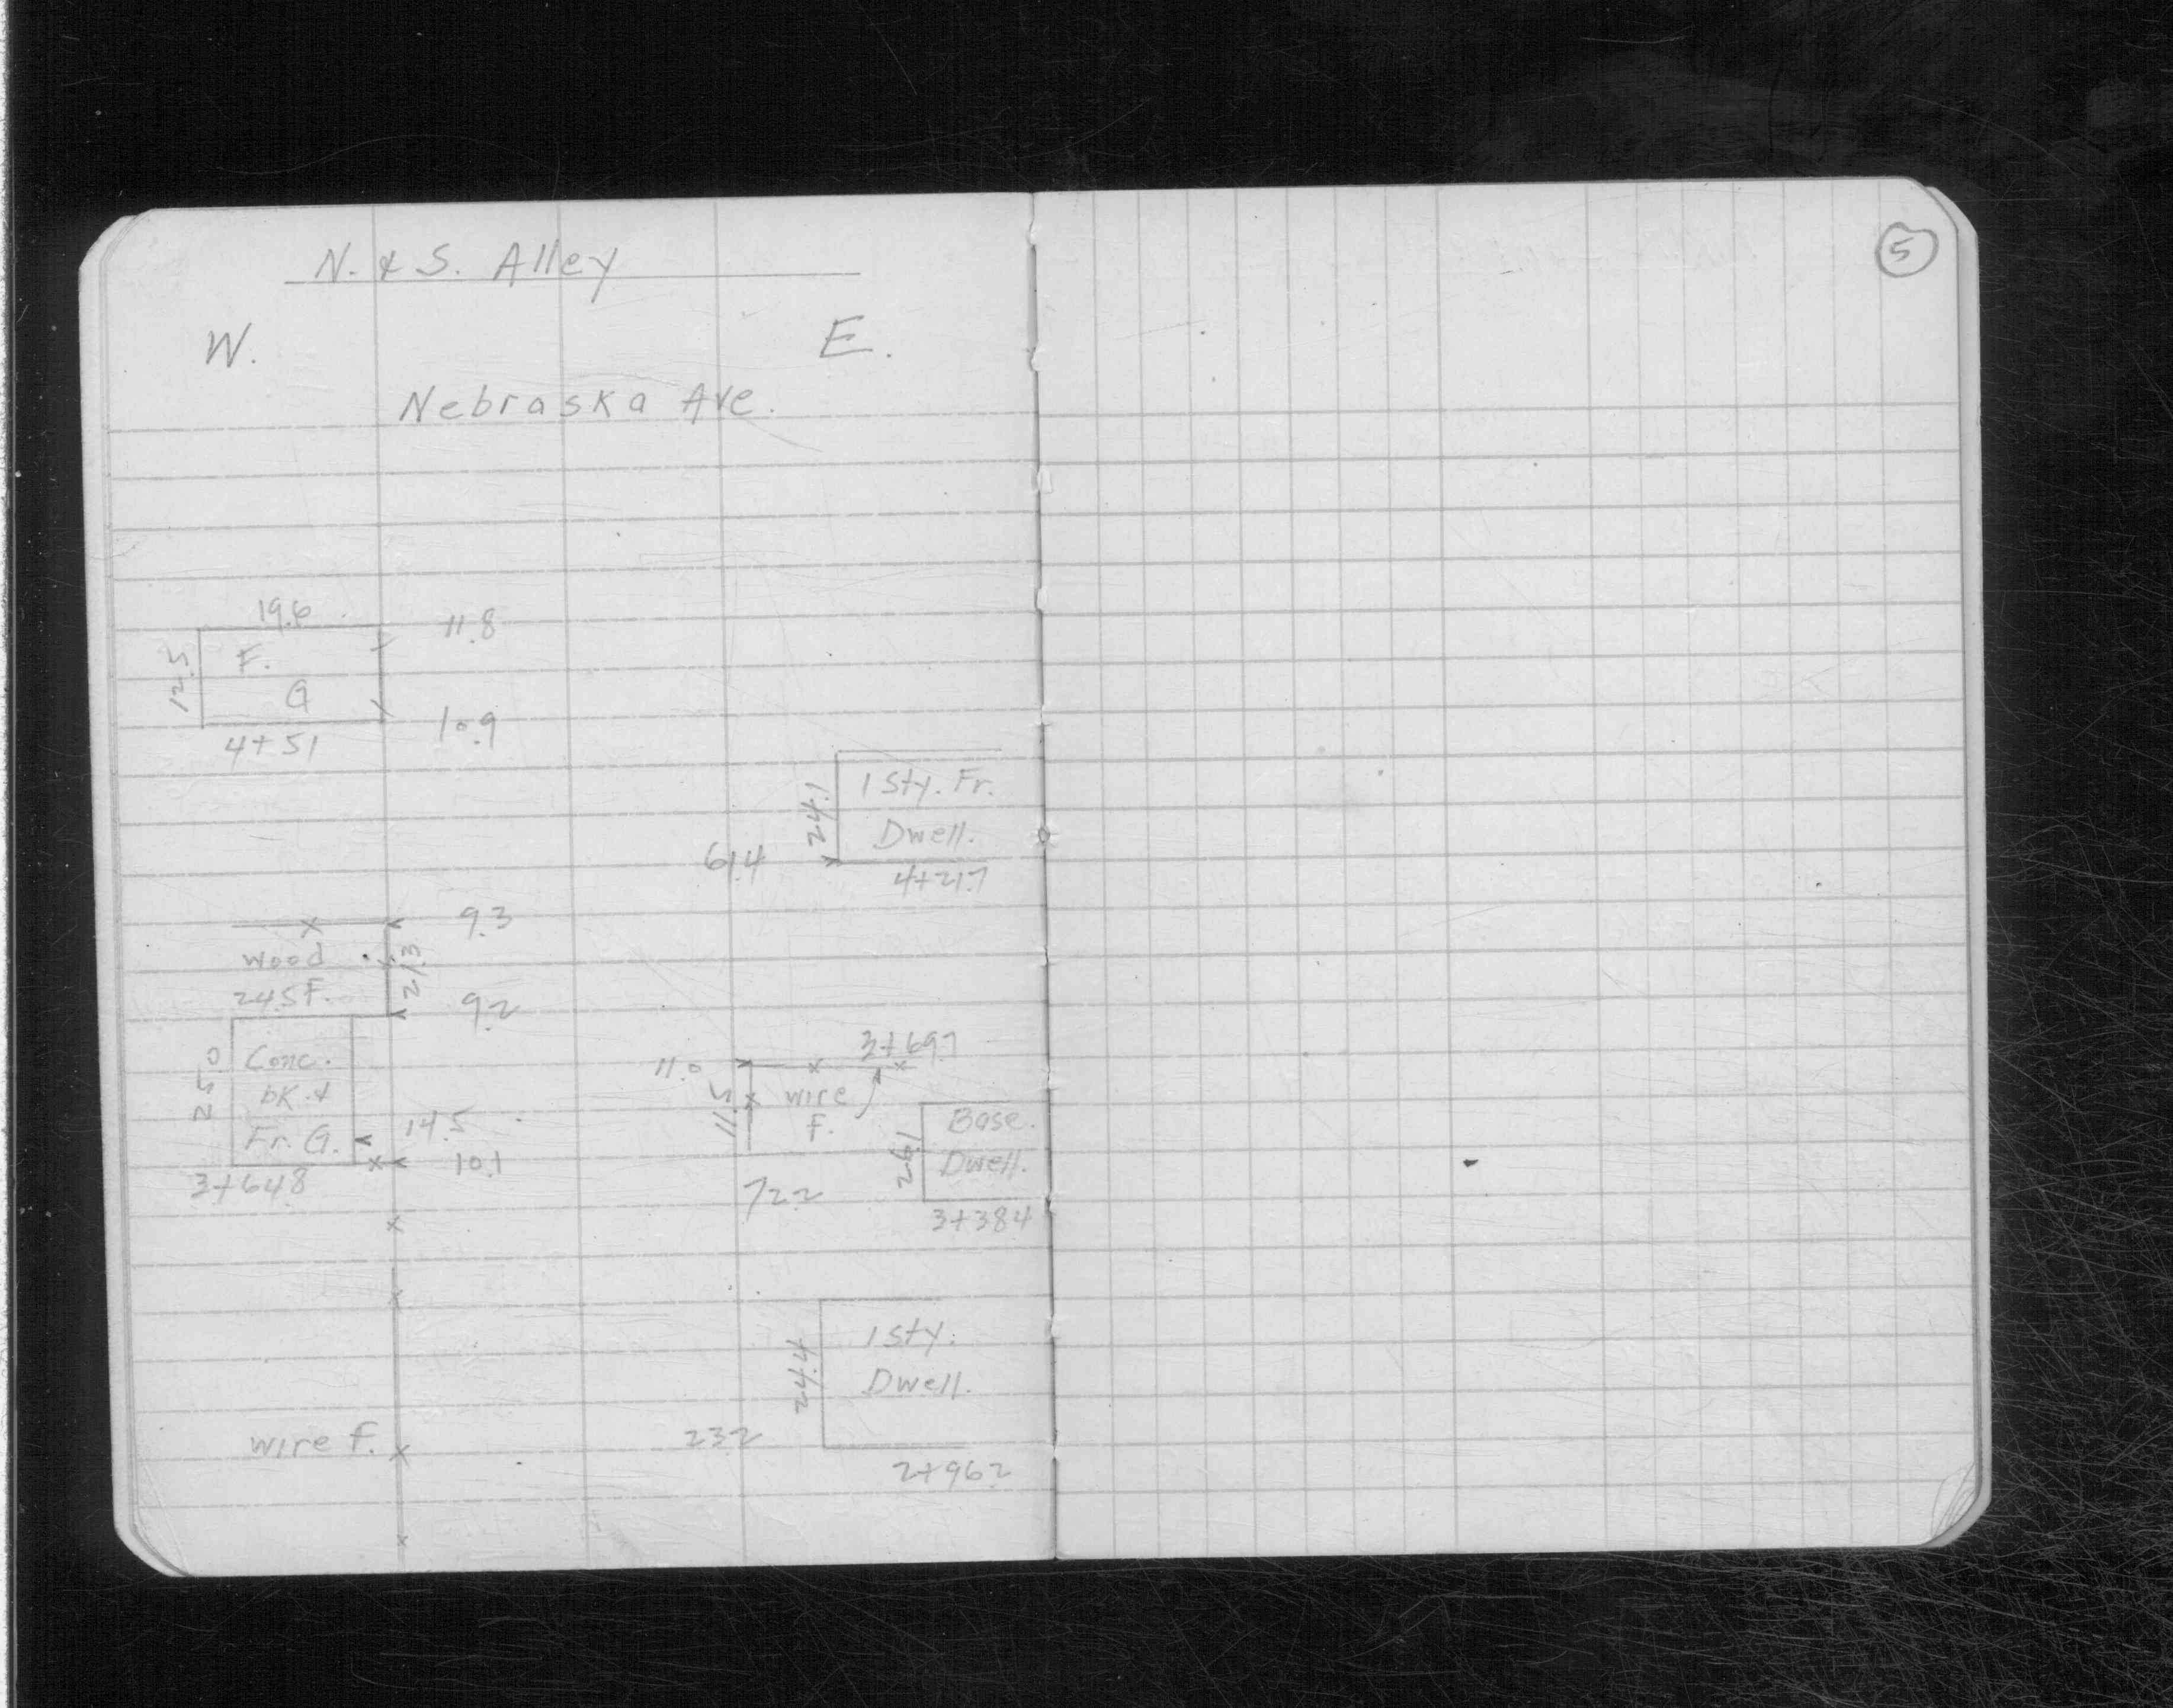 N. & S. Alley
5
W. E.
Nebraska Ave.
19.6
11.8
F.
12.5
G
10.9
4+51
1 Sty. Fr.
24.1
Dwell.
61.4
4+21.7
9.3
wood
21.3
24.5 F.
9.2
Conc.
3+69.7
11.0
25.0
bk. &
11.5
wire
F.
Base.
Fr. G.
14.5
26.1
Dwell.
10.1
3+64.8
72.2
3+38.4
1 Sty.
24.4
Dwell.
wire F.
23.2
2+96.2